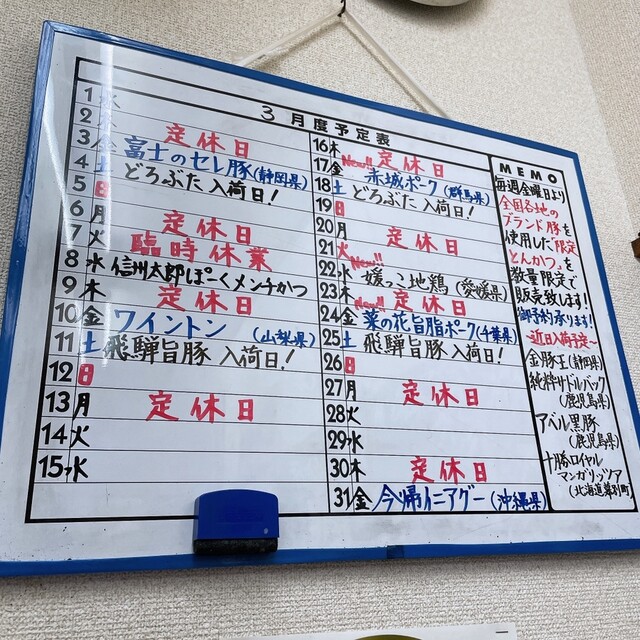 3月度予定表
1 水
2 定休日
3 金 富士のセレ豚(静岡県)
4 土 どろぶた 入荷日!
5 日
6 月 定休日
7 火 臨時休業
8 水 信州太郎ぽーくメンチかつ
9 木 定休日
10 金 ワイントン (山梨県)
11 土 飛騨旨豚 入荷日!
12 日
13 月 定休日
14 火
15 水
16 木 定休日
17 金 New!! 赤城ポーク(群馬県)
18 土 どろぶた入荷日!
19 日
20 月 定休日
21 火
22 水 New!! 媛っこ地鶏(愛媛県)
23 木 定休日
24 金 New!! 菜の花旨脂ポーク(千葉県)
25 土 飛騨旨豚 入荷日!
26 日
27 月 定休日
28 火
29 水
30 木 定休日
31 金 今帰仁アグー(沖縄県)
MEMO
毎週金曜日より
全国各地の
ブランド豚を
使用した「限定
とんかつ」を
数量限定で
販売致します!
御予約承ります!
~近日入荷予定~
金豚王(静岡県)
純粋サドルバック
(鹿児島県)
アベル黒豚
(鹿児島県)
十勝ロイヤル
マンガリッツア
(北海道幕別町)